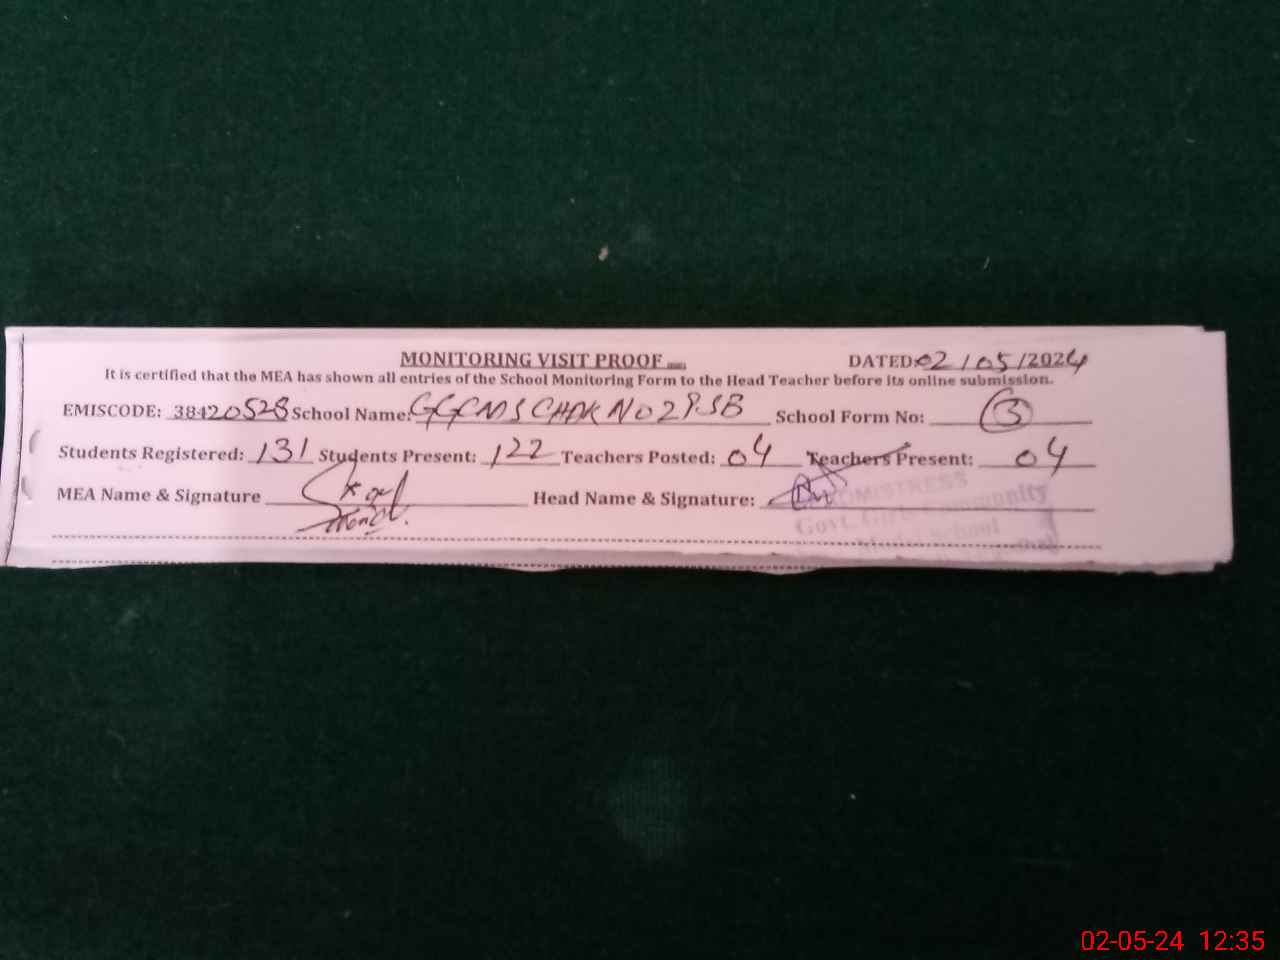 MONITORING VISIT PROOF DATED: 02/05/2024
It is certified that the MEA has shown all entries of the School Monitoring Form to the Head Teacher before its online submission.
EMISCODE: 38420528 School Name: GGCMS CHAK NO 2 PSB School Form No: 3
Students Registered: 131 Students Present: 122 Teachers Posted: 04 Teachers Present: 04
MEA Name & Signature Head Name & Signature:
Govt. Girls Community
Model School
02-05-24 12:35